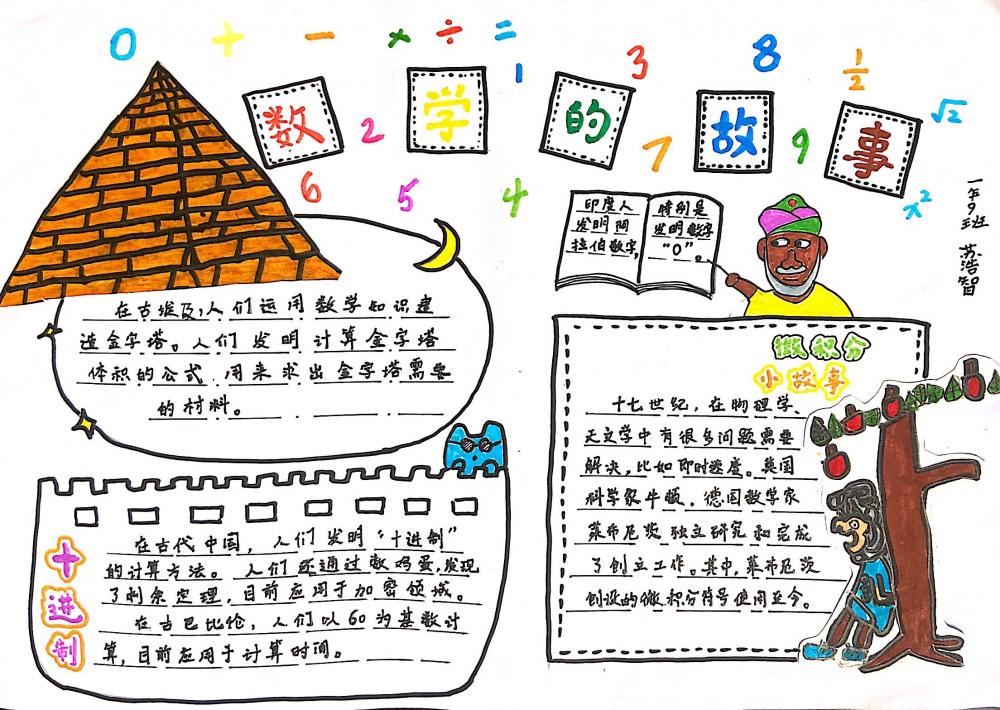 0 + − × ÷ =
1 3 8 1/2 √2
数学的故事
2 7 9
6 5 4 x²
一年9班 苏浩智
印度人
发明阿
拉伯数字,
特别是
发明数字
“0”。
在古埃及,人们运用数学知识建
造金字塔。人们发明计算金字塔
体积的公式,用来求出金字塔需要
的材料。
十进制
在古代中国,人们发明“十进制”
的计算方法。人们还通过数鸡蛋,发现
了剩余定理,目前应用于加密领域。
在古巴比伦,人们以60为基数计
算,目前应用于计算时间。
微积分
小故事
十七世纪,在物理学、
天文学中有很多问题需要
解决,比如即时速度。英国
科学家牛顿、德国数学家
莱布尼茨独立研究和完成
了创立工作。其中,莱布尼茨
创设的微积分符号使用至今。